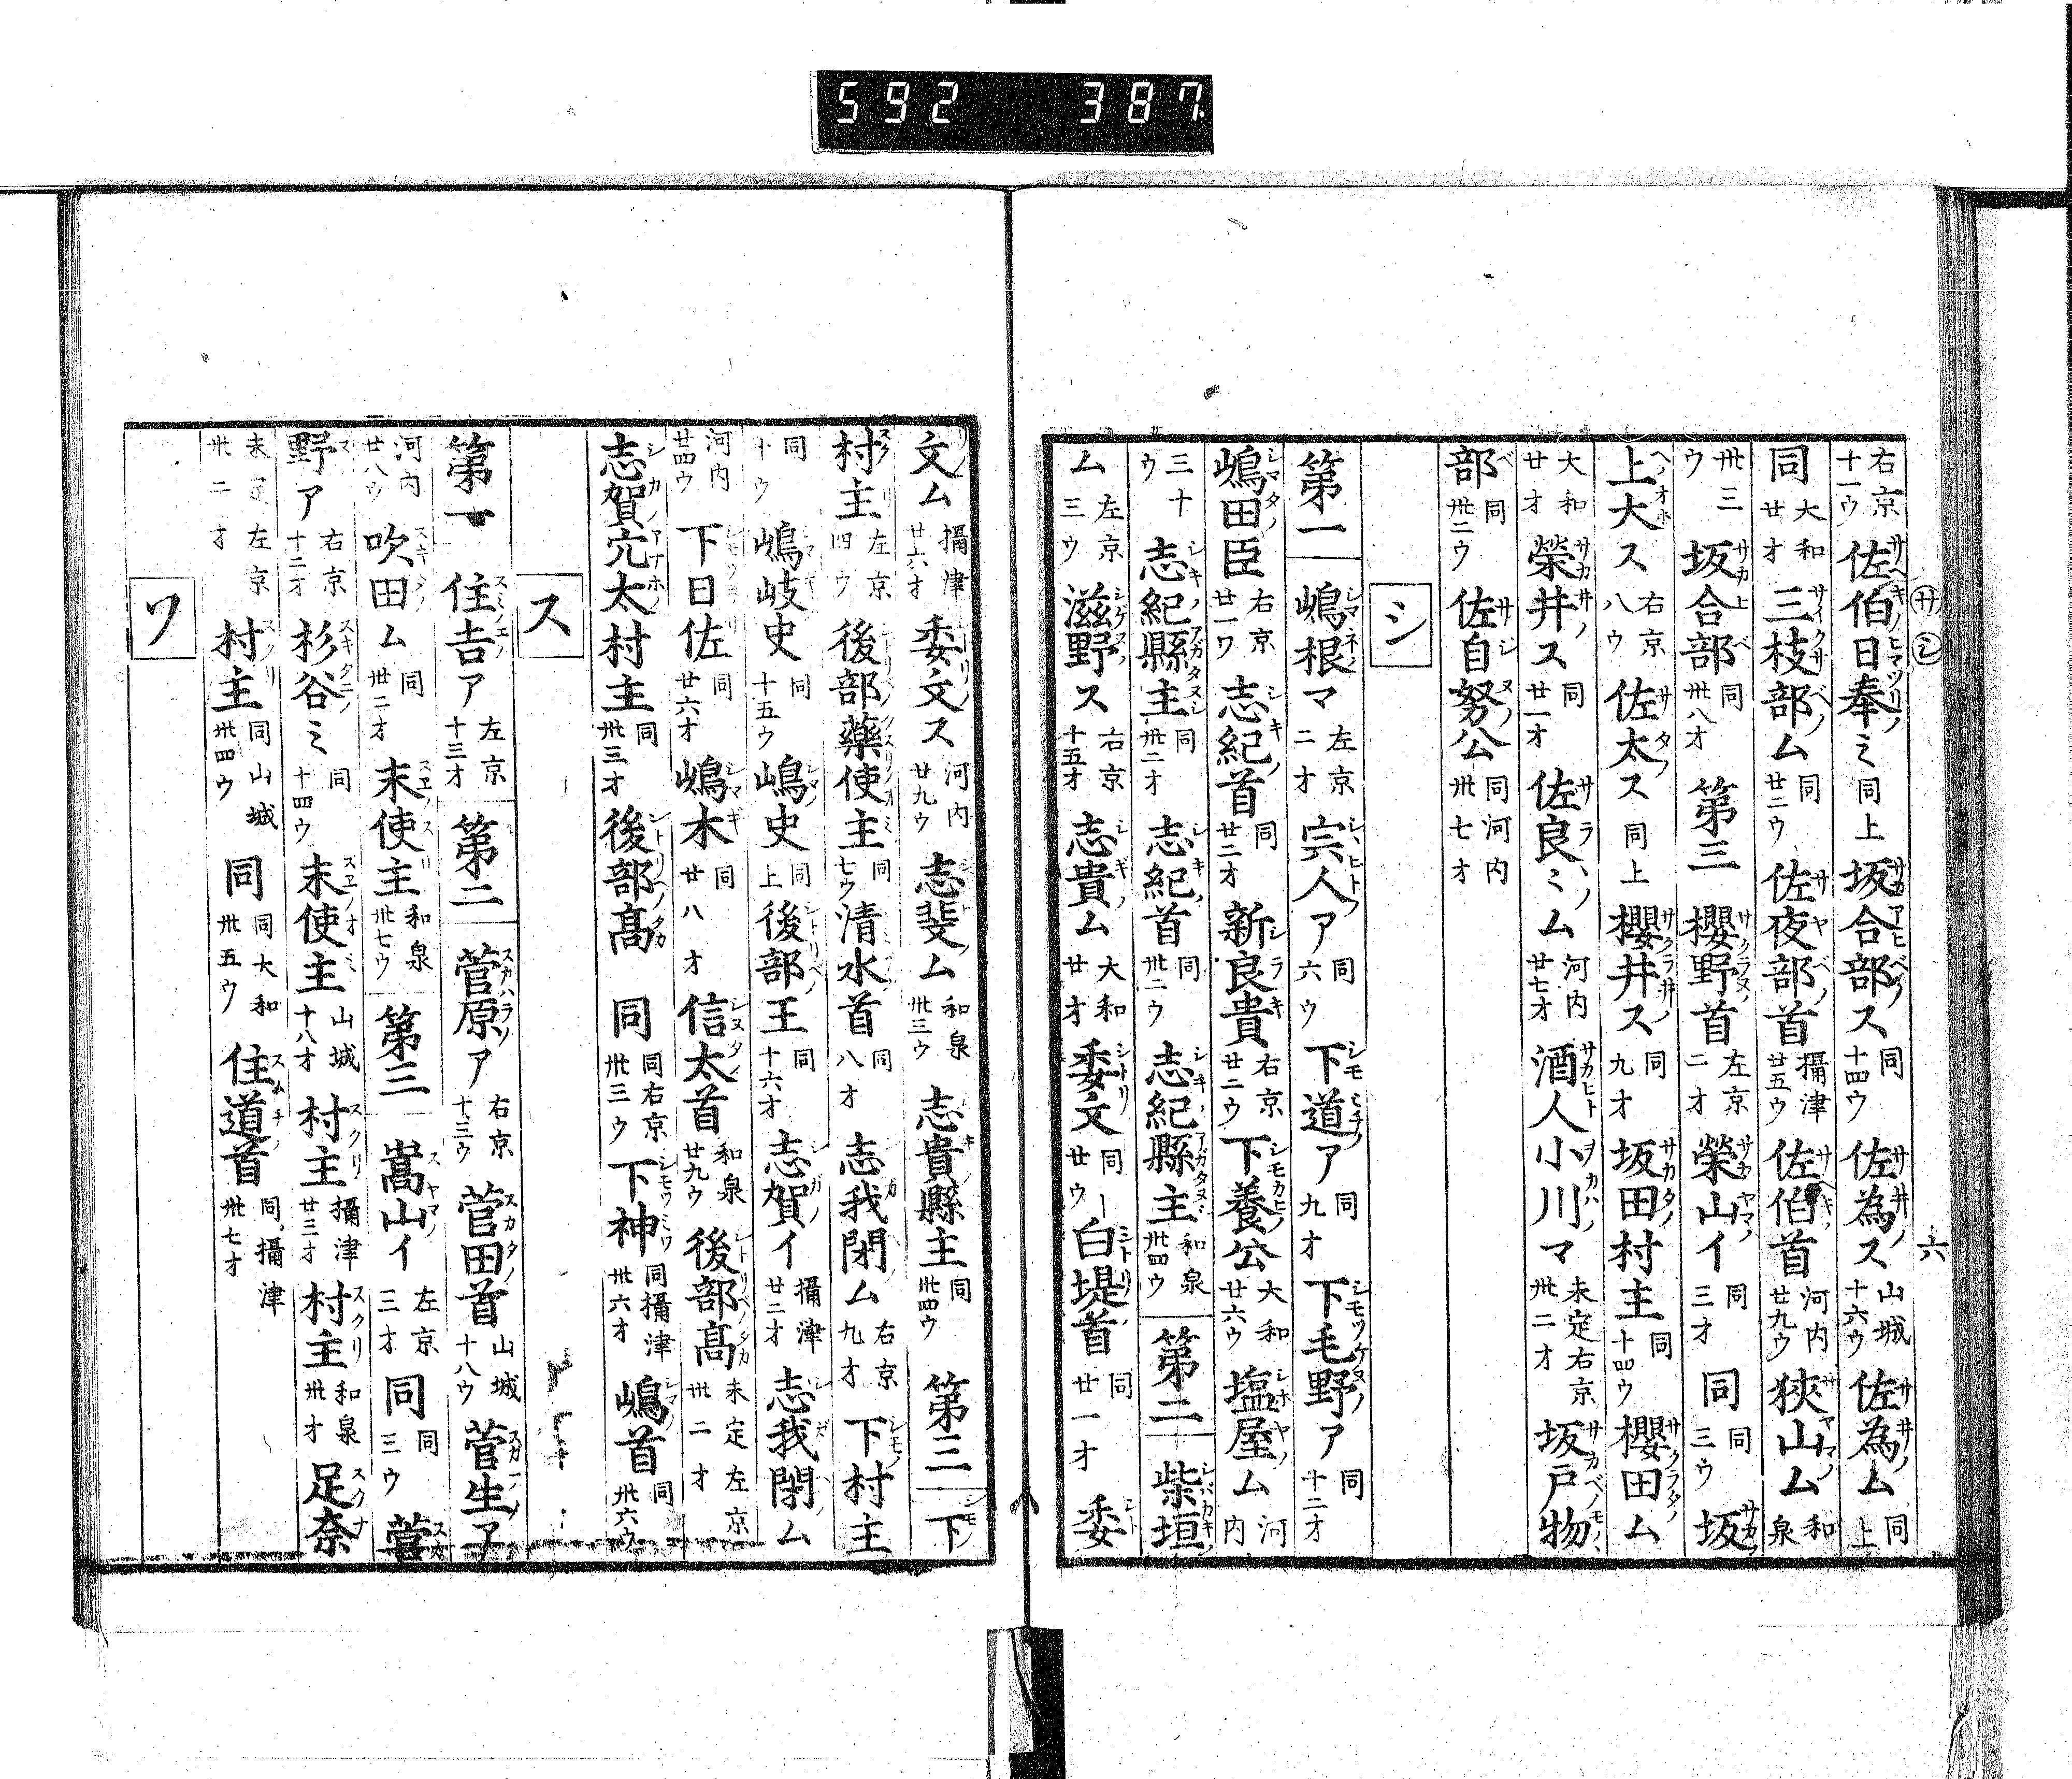 592 387
サ シ 六
右京十一ウ 佐伯日奉ミ 同上 坂合部ス 同十四ウ 佐為ス 山城十六ウ 佐為ム 同上
同 大和廿オ 三枝部ム 同廿二ウ 佐夜部首 攝津廿五ウ 佐伯首 河内廿九ウ 狹山ム 和泉
卅三ウ 坂合部 同卅八オ 第三 櫻野首 左京二オ 榮山イ 同三オ 同 同三ウ 坂
上大ス 右京八ウ 佐太ス 同上 櫻井ス 同九オ 坂田村主 同十四ウ 櫻田ム
大和廿オ 榮井ス 同廿一オ 佐良ミム 河内廿七オ 酒人小川マ 未定右京卅二オ 坂戸物
部 同卅二ウ 佐自努公 同河内卅七オ
シ
第一 嶋根マ 左京二オ 宗人ア 同六ウ 下道ア 同九オ 下毛野ア 同十二オ
嶋田臣 右京廿一ワ 志紀首 同廿二オ 新良貴 右京廿二ウ 下養公 大和廿六ウ 塩屋ム 河内
三十ウ 志紀縣主 同卅二オ 志紀首 同卅二ウ 志紀縣主 和泉卅四ウ 第二 柴垣
ム 左京三ウ 滋野ス 右京十五オ 志貴ム 大和廿オ 委文 同廿ウ 白堤首 同廿一オ 委
文ム 攝津廿六オ 委文ス 河内廿九ウ 志斐ム 和泉卅三ウ 志貴縣主 同卅四ウ 第三 下
村主 左京四ウ 後部藥使主 同七ウ 清水首 同八オ 志我閉ム 右京九オ 下村主
同十ウ 嶋岐史 同十五ウ 嶋史 同上 後部王 同十六オ 志賀イ 攝津廿二オ 志我閉ム
河内廿四ウ 下日佐 同廿六オ 嶋木 同廿八オ 信太首 和泉廿九ウ 後部髙 未定左京卅二オ
志賀穴太村主 同卅三オ 後部髙 同 同右京卅三ウ 下神 同攝津卅六オ 嶋首 同卅六ウ
ス
第一 住吉ア 左京十三オ 第二 菅原ア 右京十三ウ 菅田首 山城十八ウ 菅生ア
河内廿八ウ 吹田ム 同卅二オ 末使主 和泉卅七ウ 第三 嵩山イ 左京三オ 同 同三ウ 菅
野ア 右京十二オ 杉谷ミ 同十四ウ 末使主 山城十八オ 村主 攝津廿三オ 村主 和泉卅オ 足奈
未定左京卅二オ 村主 同山城卅四ウ 同 同大和卅五ウ 住道首 同攝津卅七オ
ソ